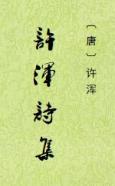 〔唐〕许浑
許渾詩集